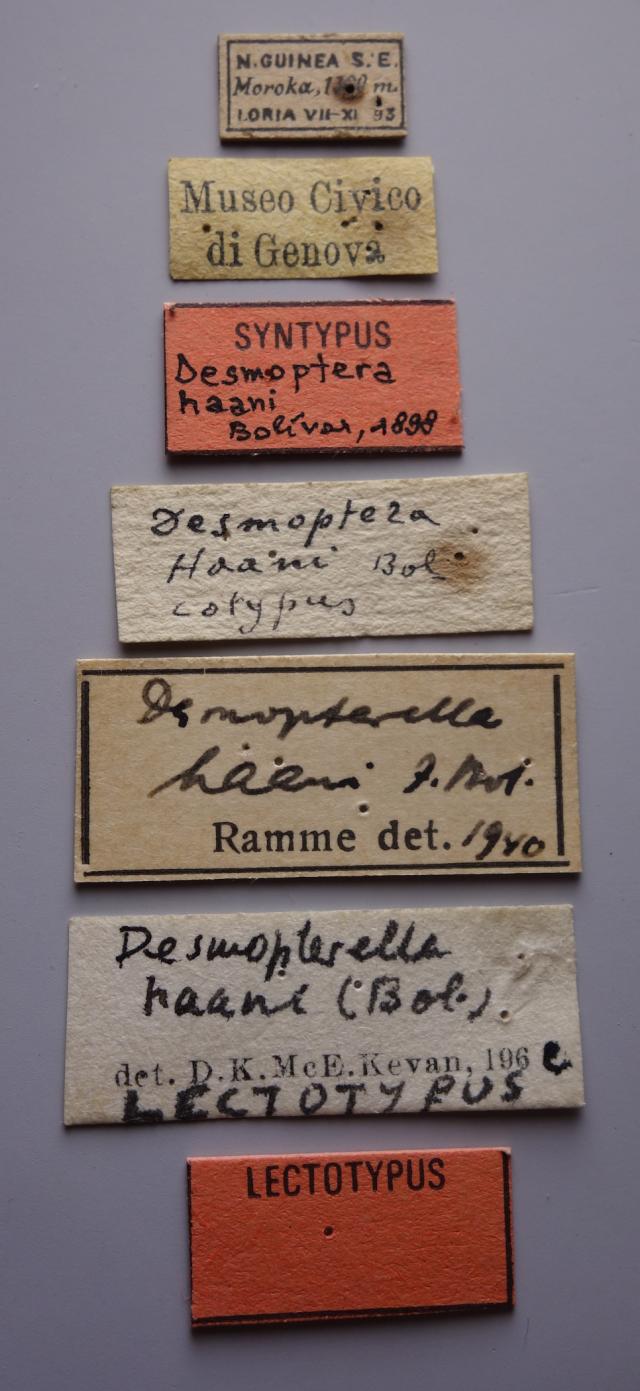 N. GUINEA S. E.
Moroka, m.
LORIA VII-XI 93
Museo Civico
di Genova
SYNTYPUS
Desmoptera
haani
Bolívar, 1898
Desmoptera
Haani Bol
cotypus
Desmopterella
haani I. Bol.
Ramme det. 1940
Desmopterella
haani (Bol.)
det. D. K. McE. Kevan, 196
LECTOTYPUS
LECTOTYPUS